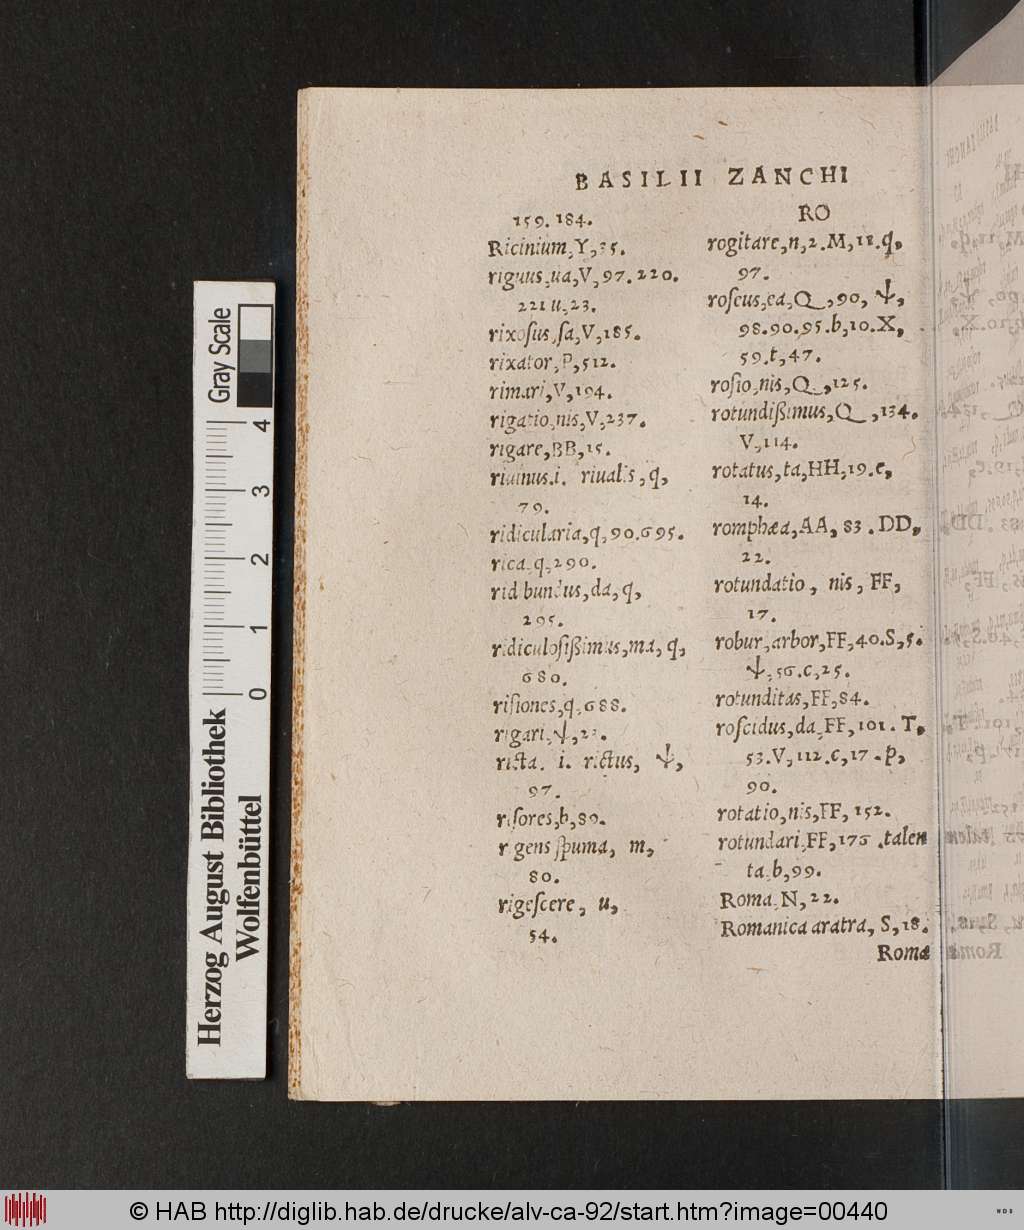 BASILII ZANCHI
159. 184.
Ricinium, Y, 35.
riguus, ua, V, 97. 220.
221 u, 23.
rixosus, sa, V, 185.
rixator, P, 512.
rimari, V, 194.
rigatio, nis, V, 237.
rigare, BB, 15.
riuinus. i. riualis, q,
79.
ridicularia, q, 90. 695.
rica, q, 290.
ridibundus, da, q,
295.
ridiculosißimus, ma, q,
680.
risiones, q, 688.
rigari, Ψ,
ricta. i. rictus, Ψ,
97.
risores, b, 89.
rigens spuma, m,
80.
rigescere, u,
54.
RO
rogitare, n, 2. M, 11. q,
97.
roseus, ea, Q, 90, Ψ,
98. 90. 95. b, 10. X,
59. t, 47.
rosio, nis, Q, 125.
rotundißimus, Q, 134.
V, 114.
rotatus, ta, HH, 19. e,
14.
romphæa, AA, 83. DD,
22.
rotundatio, nis, FF,
17.
robur, arbor, FF, 40. S, 5.
Ψ, 56. c, 25.
rotunditas, FF, 84.
roscidus, da, FF, 101. T,
53. V, 112. c, 17. p,
90.
rotatio, nis, FF, 152.
rotundari, FF, 176. talen
ta, b, 99.
Roma, N, 22.
Romanica aratra, S, 18.
Romæ
Gray Scale
4 3 2 1 0
Herzog August Bibliothek
Wolfenbüttel
© HAB http://diglib.hab.de/drucke/alv-ca-92/start.htm?image=00440